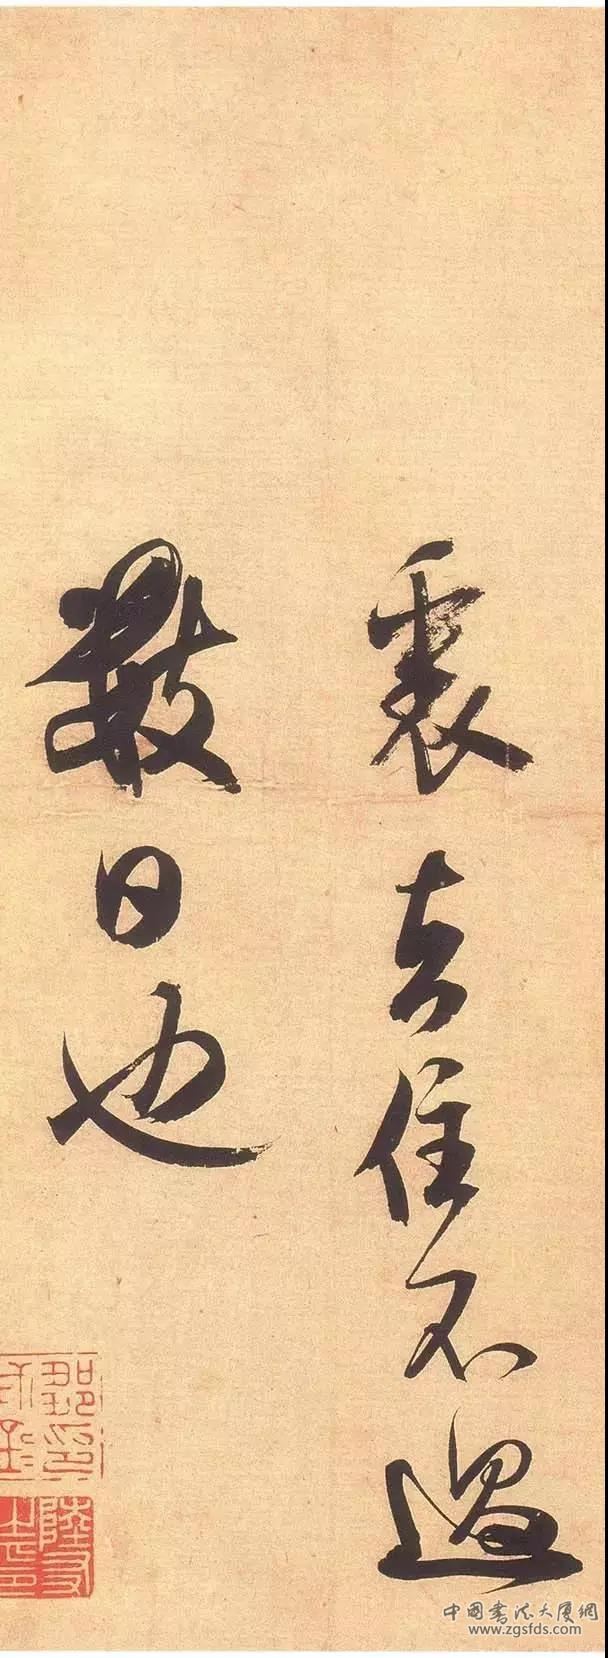 去住不過
數日也
中國書法大廈網
www.zgsfds.com